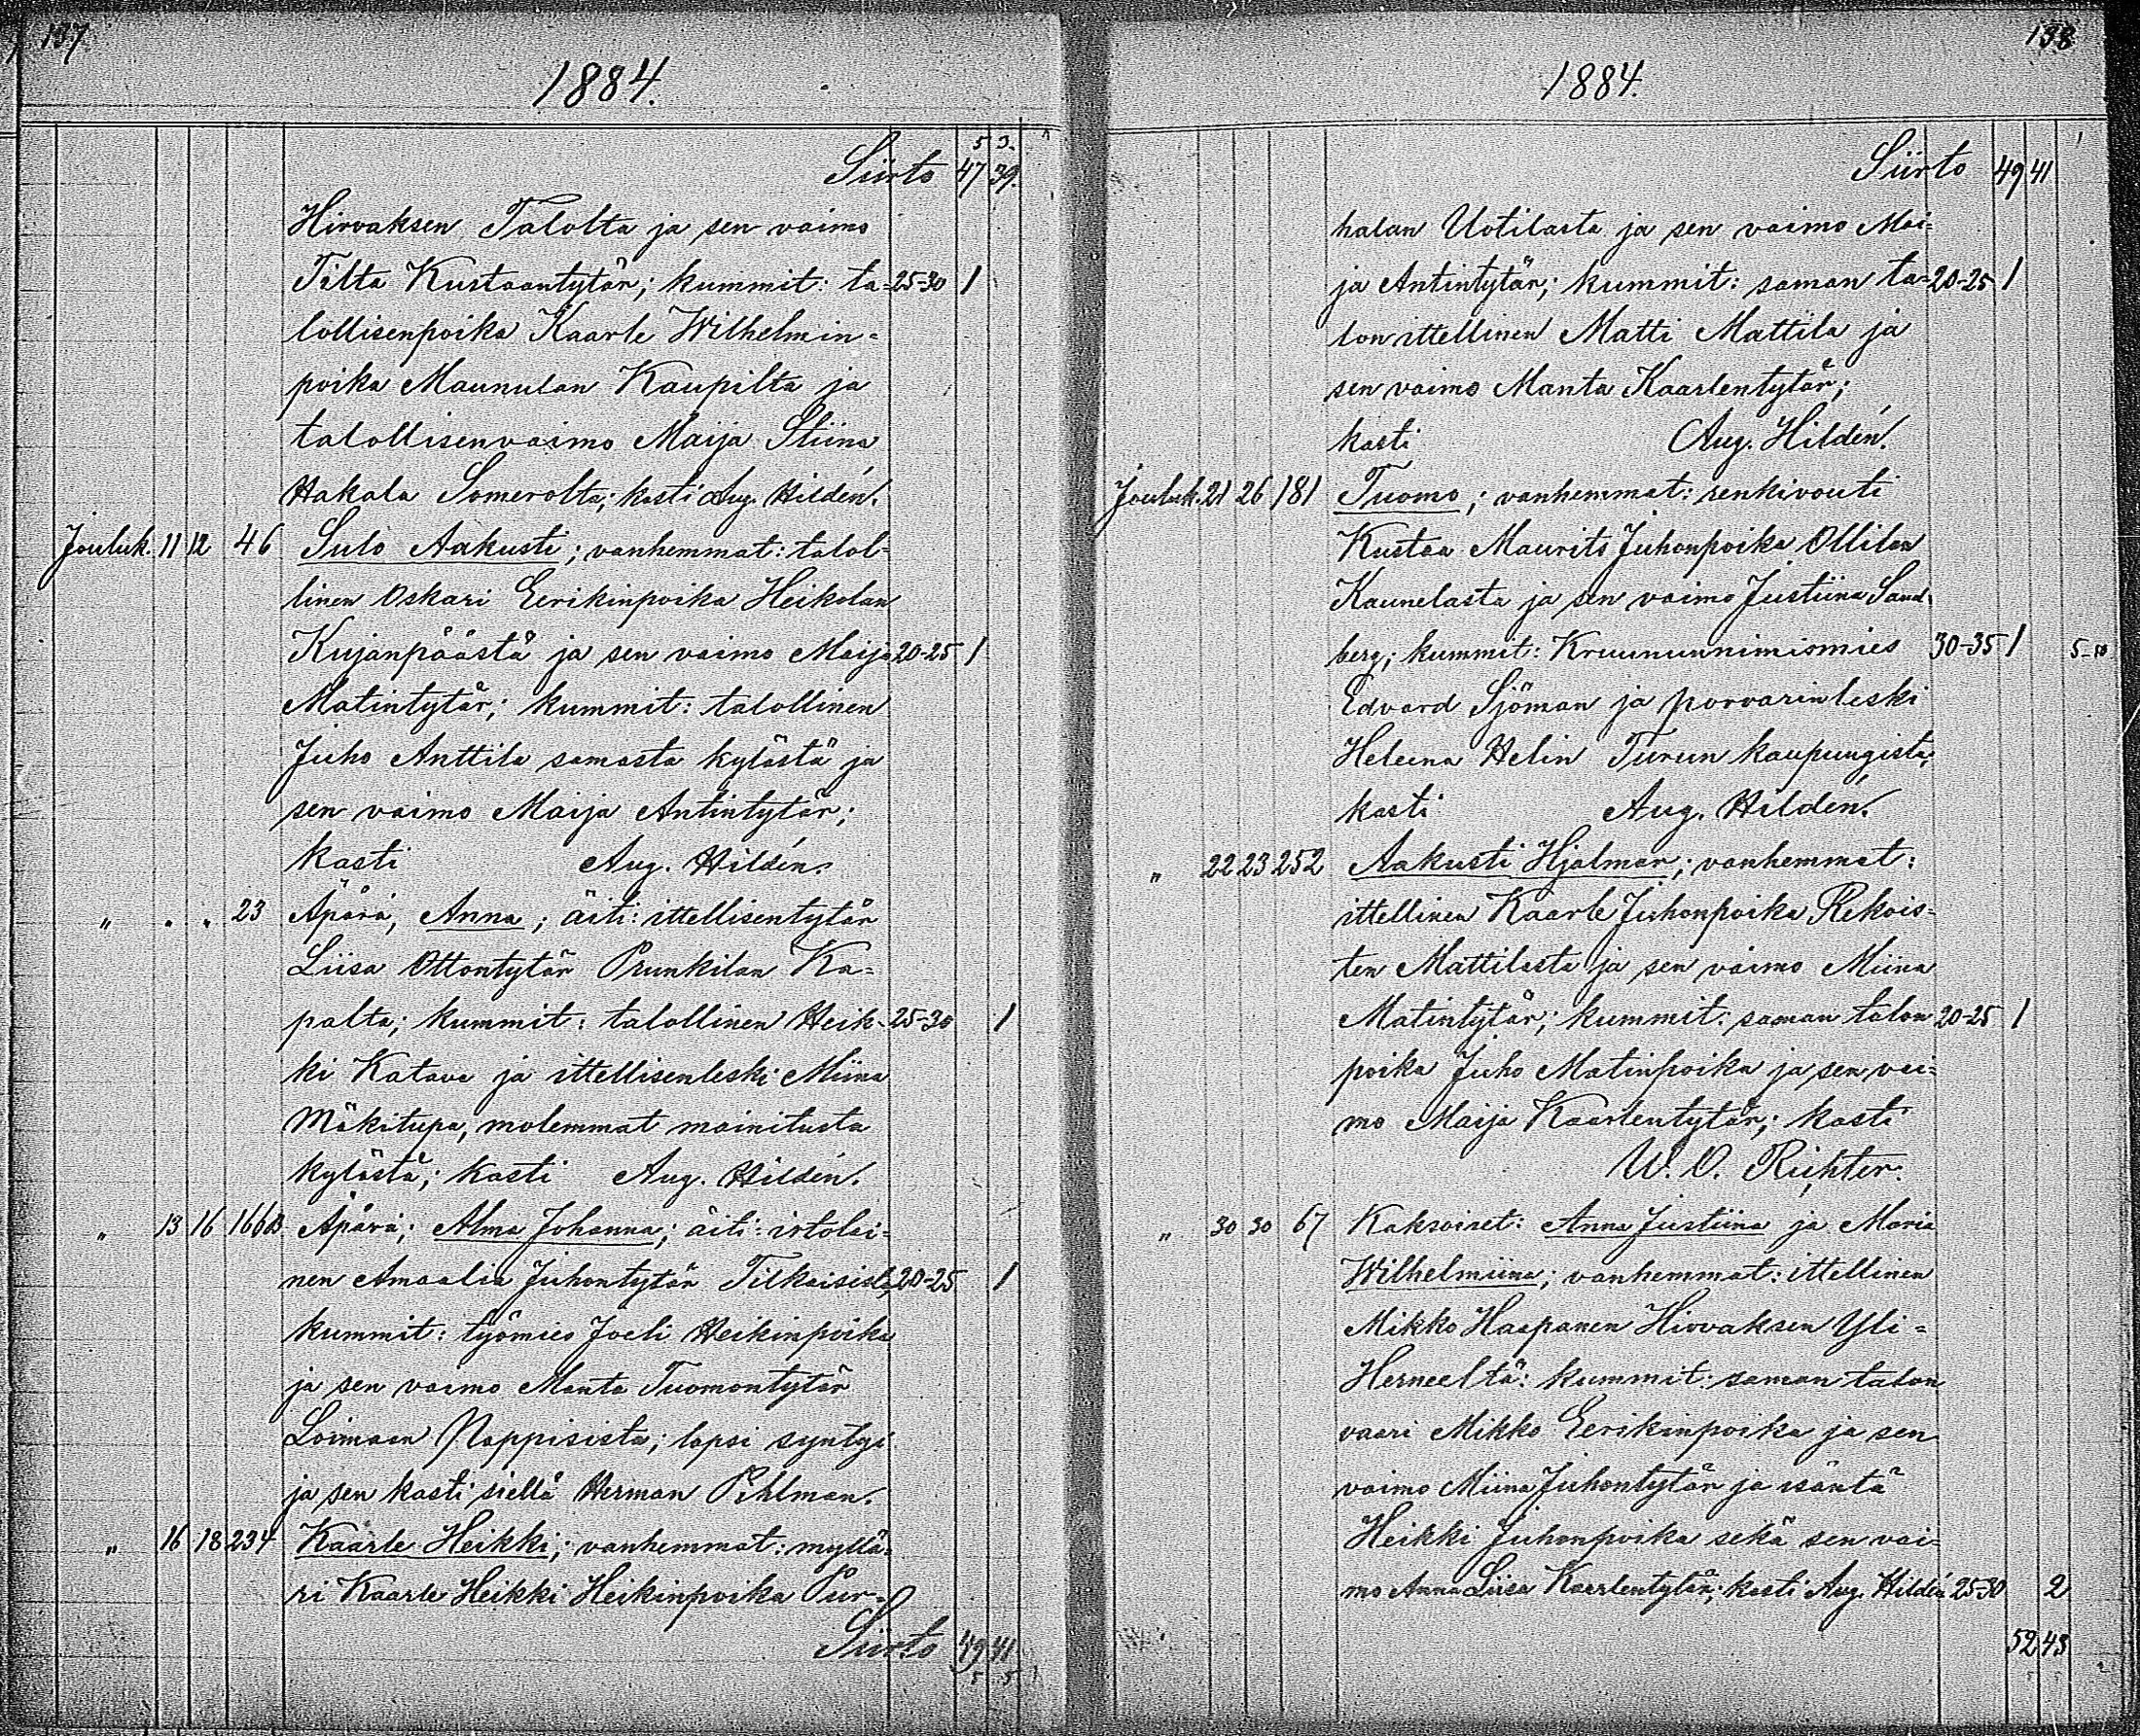 137
1884.
5 3.
Siirto 47 39.
Hirvaksen Talolta ja sen vaimo
Tilta Kustaantytär; kummit: ta= 25-30 1
lollisenpoika Kaarle Wilhelmin=
poika Maunulan Kaupilta ja
talollisenvaimo Maija Stiina
Hakala Somerolta; kasti Aug. Hildén.
Jouluk. 11 12 46 Sulo Aakusti; vanhemmat: talol=
linen Oskari Eerikinpoika Heikolan
Kujanpäästä ja sen vaimo Maija 20-25 1
Matintytär; kummit: talollinen
Juho Anttila samasta kylästä ja
sen vaimo Maija Antintytär;
kasti Aug. Hildén.
" " " 23 Äpärä, Anna; äiti: ittellisentytär
Liisa Ottontytär Prunkilan Ka=
palta; kummit: talollinen Heik- 25-30 1
ki Katava ja ittellisenleski Miina
Mäkitupa, molemmat mainitusta
kylästä; kasti Aug. Hildén.
" 13 16 166B Äpärä; Alma Johanna; äiti: irtolai=
nen Amaalia Juhontytär Tilkaisista; 20-25 1
kummit: työmies Joeli Heikinpoika
ja sen vaimo Manta Tuomontytär
Loimaan Nappisista; lapsi syntyi
ja sen kasti siellä Herman Pihlman.
" 16 18 234 Kaarle Heikki; vanhemmat: myllä=
ri Kaarle Heikki Heikinpoika Pur=
Siirto 49 41
5 5
138
1884.
Siirto 49 41
halan Uotilasta ja sen vaimo Mai=
ja Antintytär; kummit: saman ta= 20-25 1
lon ittellinen Matti Mattila ja
sen vaimo Manta Kaarlentytär;
kasti Aug. Hildén.
Jouluk. 21 26 181 Tuomo; vanhemmat: renkivouti
Kustaa Maurits Juhonpoika Ollilan
Kaunelasta ja sen vaimo Justiina Sand=
berg; kummit: Kruununnimismies 30-35 1
Edvard Sjöman ja porvarinleski
Heleena Helin Turun kaupungista;
kasti Aug. Hildén.
" 22 23 252 Aakusti Hjalmar; vanhemmat:
ittellinen Kaarle Juhonpoika Rekois=
ten Mattilasta ja sen vaimo Miina
Matintytär; kummit: saman talon 20-25 1
poika Juho Matinpoika ja sen vai=
mo Maija Kaarlentytär; kasti
W. O. Richter.
" 30 30 67 Kaksoiset: Anna Justiina ja Maria
Wilhelmiina; vanhemmat: ittellinen
Mikko Haapanen Hirvaksen Yli=
Herneeltä: kummit: saman talon
vaari Mikko Eerikinpoika ja sen
vaimo Miina Juhontytär ja isäntä
Heikki Juhonpoika sekä sen vai=
mo Anna Liisa Kaarlentytär; kasti Aug. Hildén 25-30 2
52 43